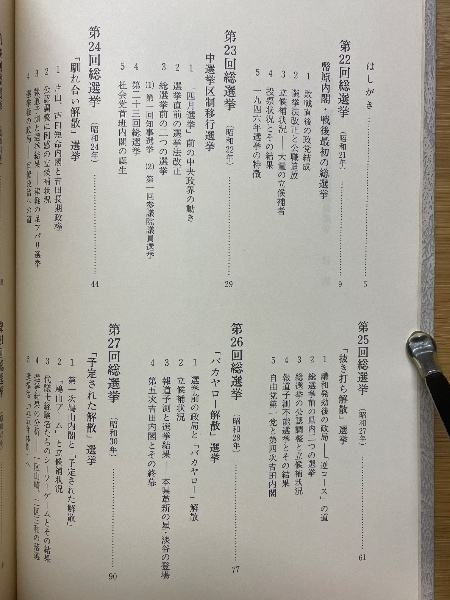 はしがき……5
第22回総選挙（昭和21年）……9
幣原内閣・戦後最初の総選挙
1 敗戦直後の政党結成
2 選挙法改正と公職追放
3 立候補状況――大量の立候補者
4 投票状況とその結果
5 一九四六年選挙の特徴
第23回総選挙（昭和22年）……29
中選挙区制移行選挙
1 「四月選挙」前の中央政界の動き
2 選挙直前の選挙法改正
3 総選挙前の二つの選挙
(1) 第一回知事選挙 (2) 第一回参議院議員選挙
4 第二十三回総選挙
5 社会党首班内閣の誕生
第24回総選挙（昭和24年）……44
「馴れ合い解散」選挙
1 片山、芦田短命内閣と吉田長期政権
2 公認調整に困惑の立候補状況
3 報道予測と選挙結果
第25回総選挙（昭和27年）……61
「抜き打ち解散」選挙
1 講和発効後の政局――「逆コース」の道
2 総選挙前の県内二つの選挙
3 総選挙の公認調整と立候補状況
4 報道予測不能選挙とその結果
5 自由党第一党と第四次吉田内閣
第26回総選挙（昭和28年）……77
「バカヤロー解散」選挙
1 選挙前の政局と「バカヤロー」解散
2 立候補状況
3 報道予測と選挙結果――本県革新の星・淡谷の登場
4 第五次吉田内閣とその終幕
第27回総選挙（昭和30年）……90
「予定された解散」選挙
1 第一次鳩山内閣と「予定された解散」
2 「鳩山ブーム」と立候補状況
3 代議士経験者たちのシーソーゲームとその結果